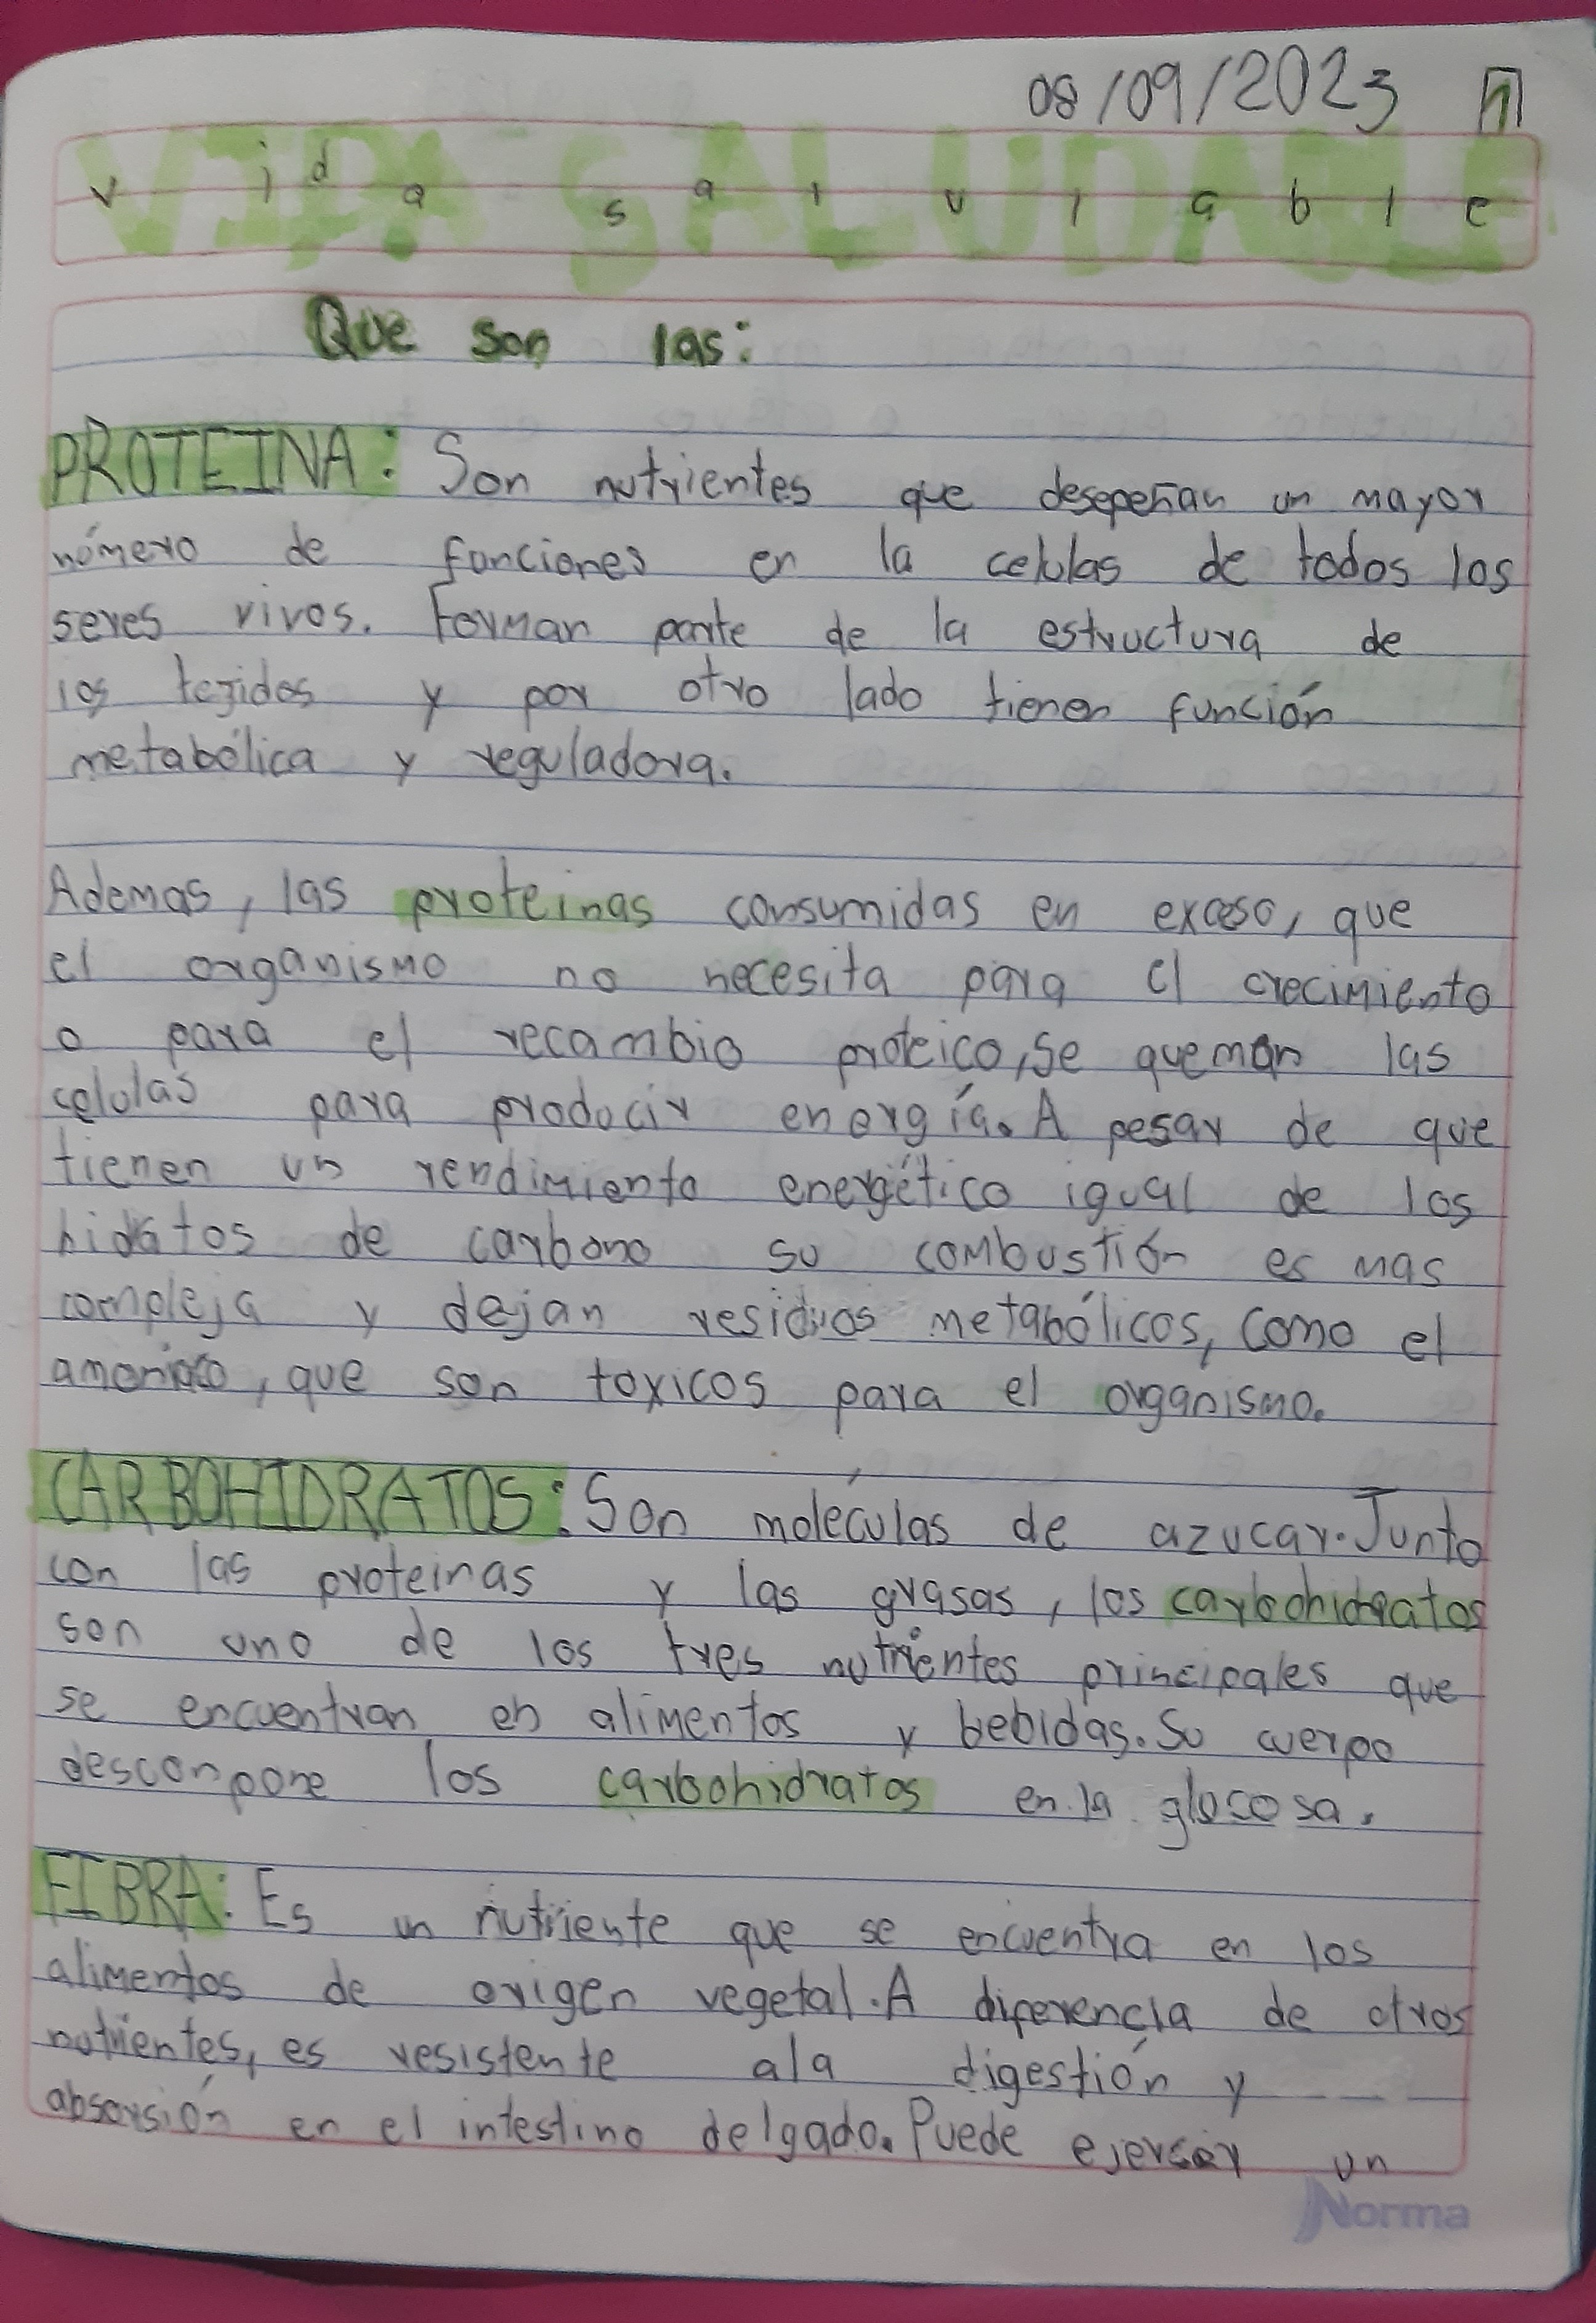 08/09/2023 1
VIDA SALUDABLE
v i d a s a l u d a b l e
Que son las:
PROTEINA: Son nutrientes que desepeñan un mayor
número de funciones en la celulas de todos los
seres vivos. Forman parte de la estructura de
los tejidos y por otro lado tienen función
metabólica y reguladora.
Ademas, las proteinas consumidas en exceso, que
el organismo no necesita para el crecimiento
o para el recambio proteico, se queman las
celulas para producir energía. A pesar de que
tienen un rendimiento energético igual de los
hidatos de carbono su combustión es mas
compleja y dejan residuos metabólicos, como el
amoniaco, que son toxicos para el organismo.
CARBOHIDRATOS: Son moléculas de azucar. Junto
con las proteinas y las grasas, los carbohidratos
son uno de los tres nutrientes principales que
se encuentran en alimentos y bebidas. Su cuerpo
desconpone los carbohidratos en la glucosa.
FIBRA: Es un nutriente que se encuentra en los
alimentos de origen vegetal. A diferencia de otros
nutrientes, es resistente ala digestión y
absorsión en el intestino delgado. Puede ejerser un
Norma